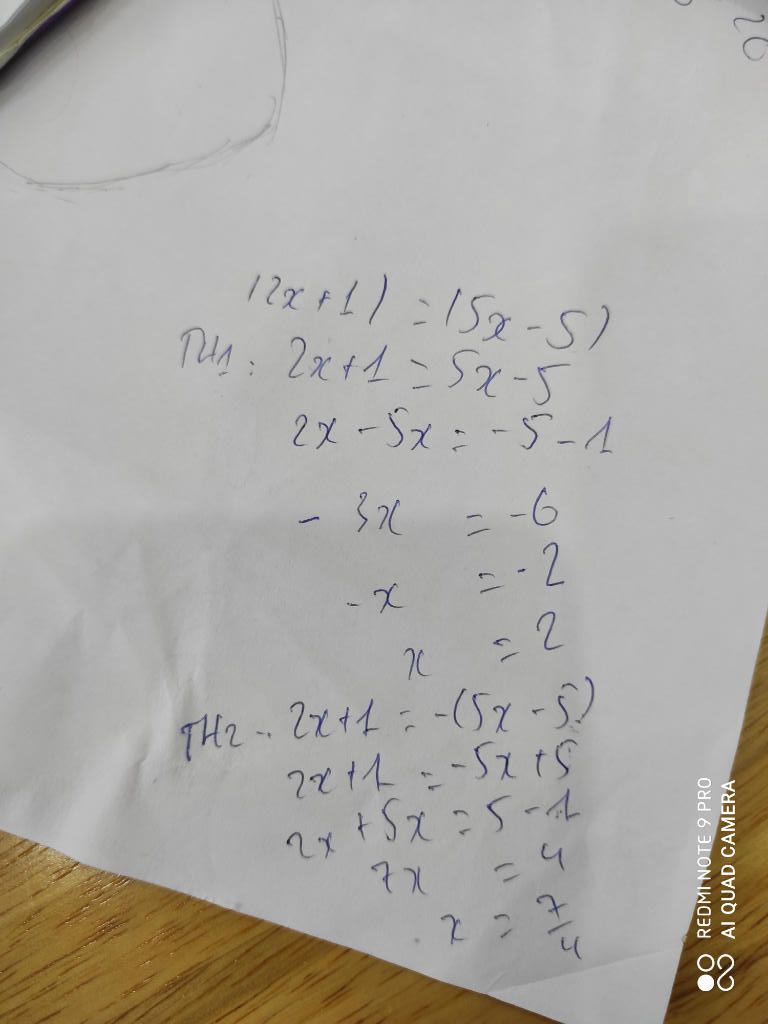 |2x+1| = |5x-5|
TH1: 2x+1 = 5x-5
2x-5x = -5-1
-3x = -6
-x = -2
x = 2
TH2: 2x+1 = -(5x-5)
2x+1 = -5x+5
2x+5x = 5-1
7x = 4
x = 7/4
REDMI NOTE 9 PRO
AI QUAD CAMERA